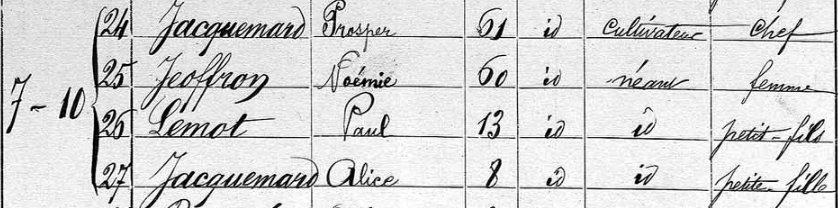 24 Jacquemard Prosper 61 id Cultivateur Chef
25 Jeoffron Noémie 60 id néant femme
7 - 10 26 Lemot Paul 13 id id petit-fils
27 Jacquemard Alice 8 id id petite-fille